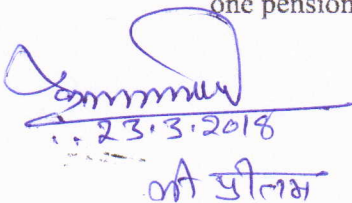 one pension
23.3.2018
श्री प्रीतम